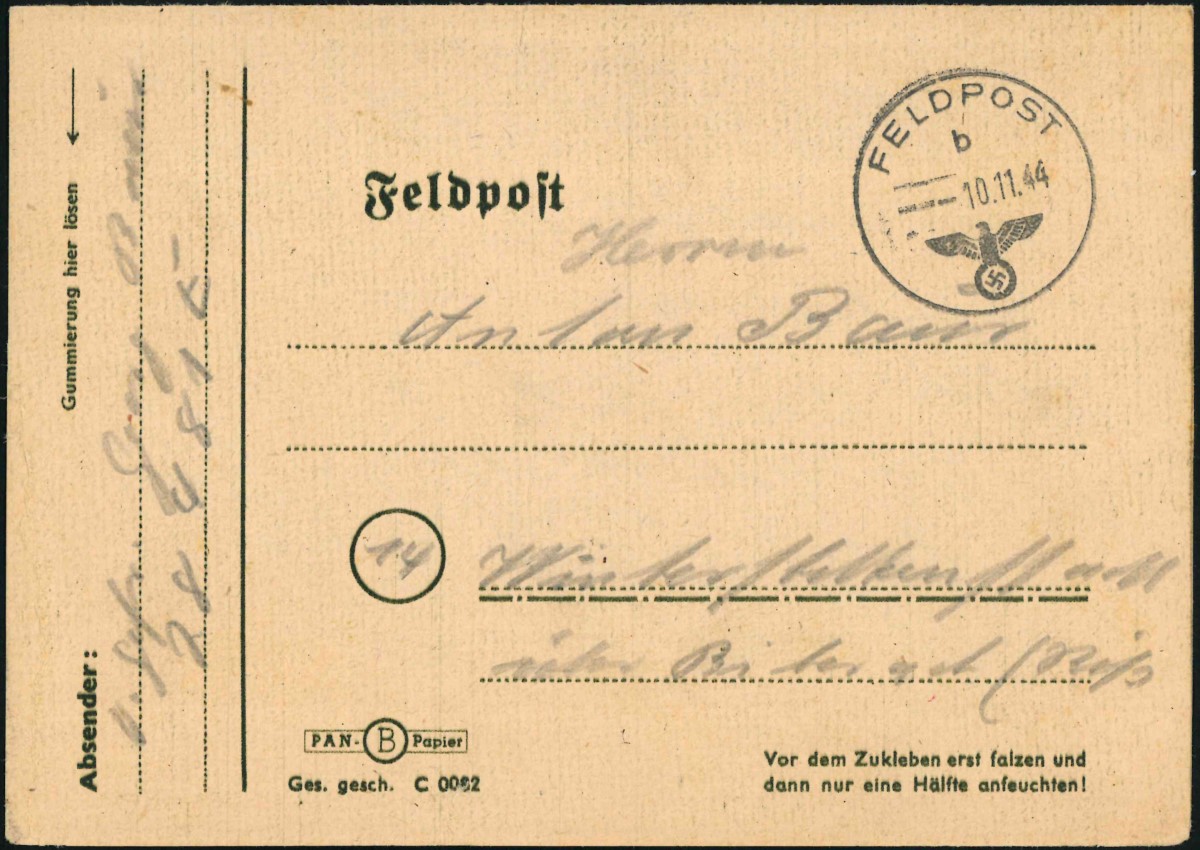 FELDPOST
b
10.11.44
Feldpost
Herrn
Anton Baur
14
Winterstettenstadt
über Biberach (Riß
Gummierung hier lösen
Absender:
Georg Baur
PAN-B Papier
Ges. gesch. C 0082
Vor dem Zukleben erst falzen und
dann nur eine Hälfte anfeuchten!